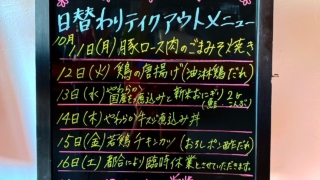 日替わりテイクアウトメニュー
10月
11日(月)豚ロース肉のごまみそ焼き
12日(火)鶏の唐揚げ(油淋鶏だれ)
13日(水)やわらか国産モツ煮込みと新米おにぎり2ヶ
14日(木)やわらか牛スジ煮込み丼
15日(金)若鶏チキンカツ(おろしポン酢だれ)
16日(土)都合により臨時休業とさせていただきます。